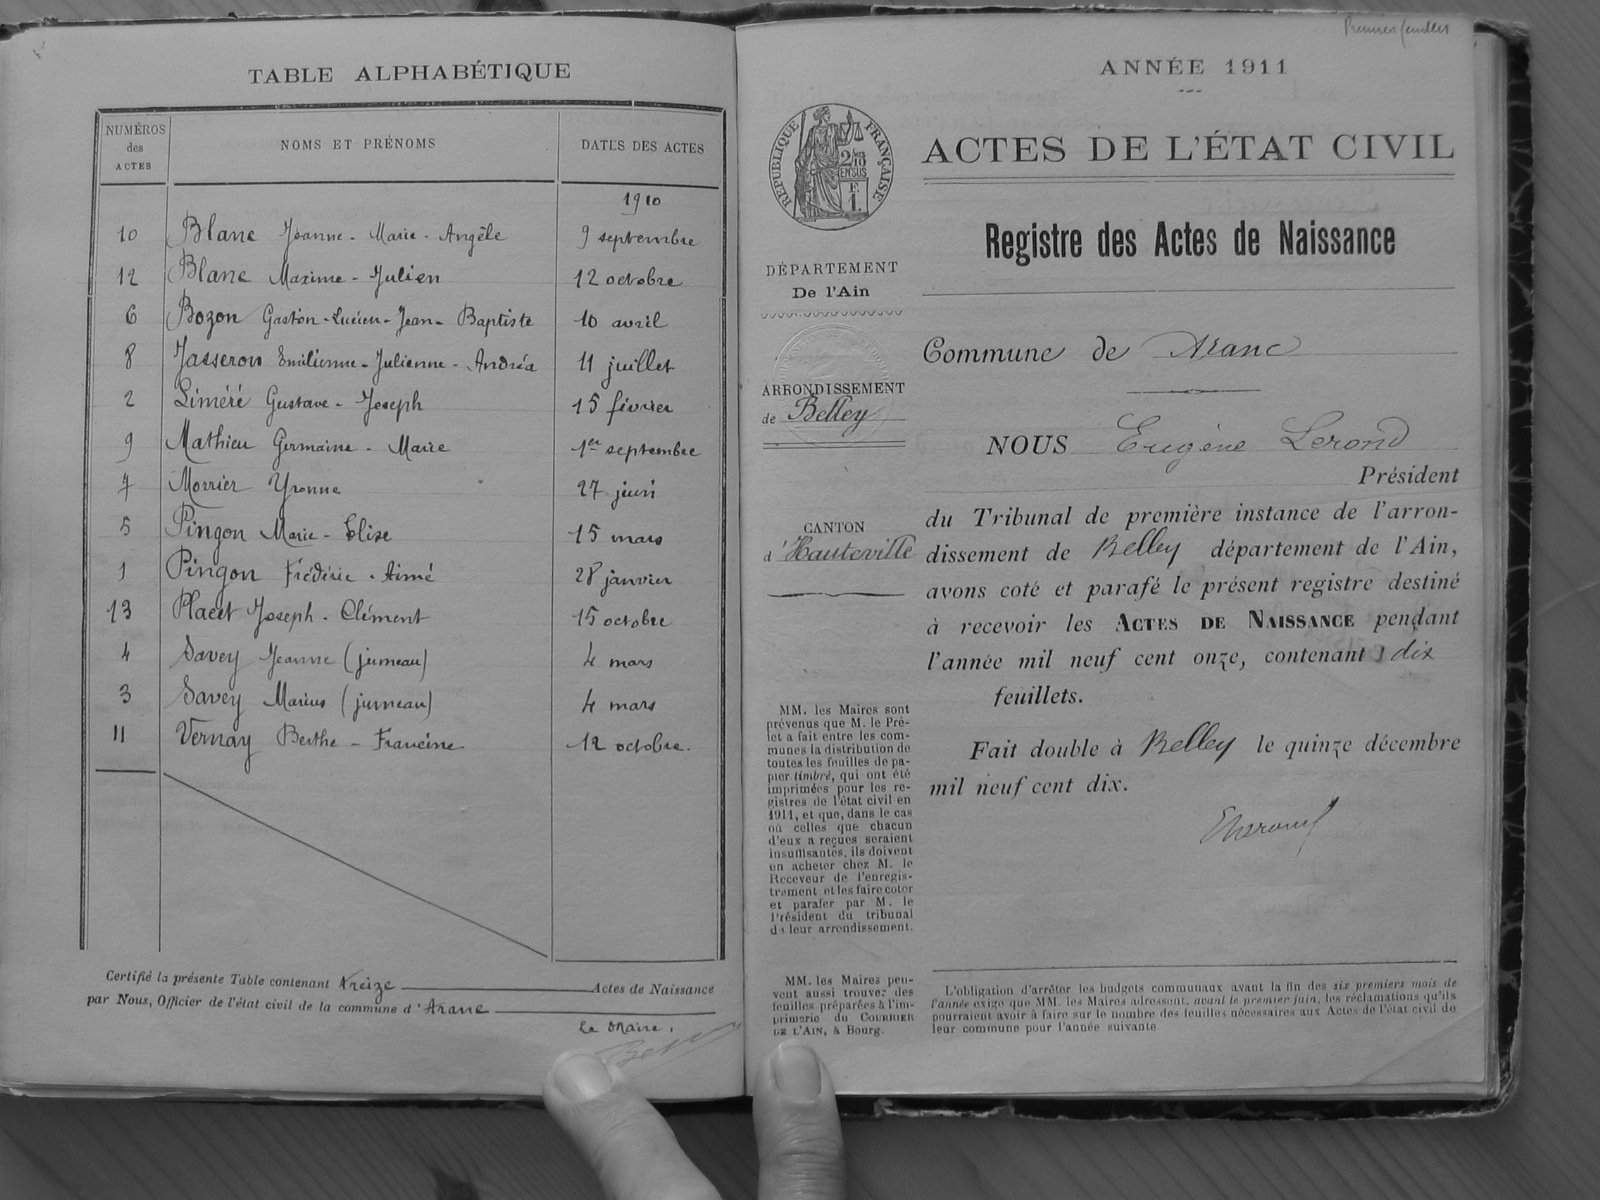 TABLE ALPHABÉTIQUE
NUMÉROS des ACTES
NOMS ET PRÉNOMS
DATES DES ACTES
1910
10 Blanc Jeanne - Marie - Angèle 9 septembre
12 Blanc Maxime - Julien 12 octobre
6 Bozon Gaston - Lucien - Jean - Baptiste 10 avril
8 Jasseron Emilienne - Julienne - Andréa 11 juillet
2 Liméré Gustave - Joseph 15 février
9 Mathieu Germaine - Marie 1er septembre
7 Morrier Yvonne 27 juin
5 Pingon Marie - Elise 15 mars
1 Pingon Frédéric - Aimé 28 janvier
13 Placet Joseph - Clément 15 octobre
4 Savey Jeanne (jumeau) 4 mars
3 Savey Marius (jumeau) 4 mars
11 Vernay Berthe - Francine 12 octobre.
Certifié la présente Table contenant treize Actes de Naissance
par Nous, Officier de l'état civil de la commune d'Aranc
Le Maire,
Premier feuillet
ANNÉE 1911
RÉPUBLIQUE FRANÇAISE
2/10 EN SUS
F.
1.
ACTES DE L'ÉTAT CIVIL
Registre des Actes de Naissance
DÉPARTEMENT
De l'Ain
ARRONDISSEMENT
de Belley
CANTON
d'Hauteville
MM. les Maires sont
prévenus que M. le Pré-
fet a fait entre les com-
munes la distribution de
toutes les feuilles de pa-
pier timbré, qui ont été
imprimées pour les re-
gistres de l'état civil en
1911, et que, dans le cas
où celles que chacun
d'eux a reçues seraient
insuffisantes, ils doivent
en acheter chez M. le
Receveur de l'enregis-
trement et les faire coter
et parafer par M. le
Président du tribunal
de leur arrondissement.
MM. les Maires peu-
vent aussi trouver des
feuilles préparées à l'im-
primerie du COURRIER
DE L'AIN, à Bourg.
Commune de Aranc
NOUS Eugène Lerond
Président
du Tribunal de première instance de l'arron-
dissement de Belley département de l'Ain,
avons coté et parafé le présent registre destiné
à recevoir les ACTES DE NAISSANCE pendant
l'année mil neuf cent onze, contenant dix
feuillets.
Fait double à Belley le quinze décembre
mil neuf cent dix.
L'obligation d'arrêter les budgets communaux avant la fin des six premiers mois de
l'année exige que MM. les Maires adressent, avant le premier juin, les réclamations qu'ils
pourraient avoir à faire sur le nombre des feuilles nécessaires aux Actes de l'état civil de
leur commune pour l'année suivante.